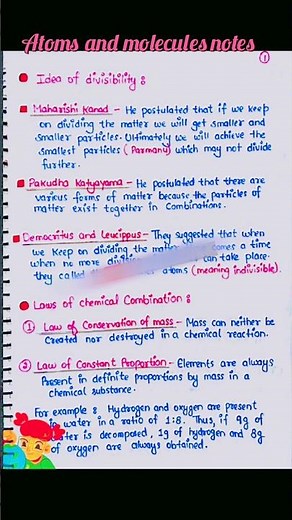 Atoms and molecules notes
①
Idea of divisibility :
Maharishi Kanad - He postulated that if we keep
on dividing the matter we will get smaller and
smaller particles. Ultimately we will achieve the
smallest particles (Parmanu) which may not divide
further.
Pakudha Katyayama - He postulated that there are
various forms of matter because the particles of
matter exist together in Combinations.
Democritus and Leucippus - They suggested that when
we keep on dividing the matter comes a time
when no more can take place.
they called atoms (meaning indivisible).
Laws of chemical Combination :
① Law of Conservation of mass - Mass can neither be
Created nor destroyed in a chemical reaction.
② Law of Constant Proportion - Elements are always
Present in definite proportions by mass in a
chemical substance.
For example : Hydrogen and oxygen are present
in water in a ratio of 1:8. Thus, if 9g of
water is decomposed, 1g of hydrogen and 8g
of oxygen are always obtained.